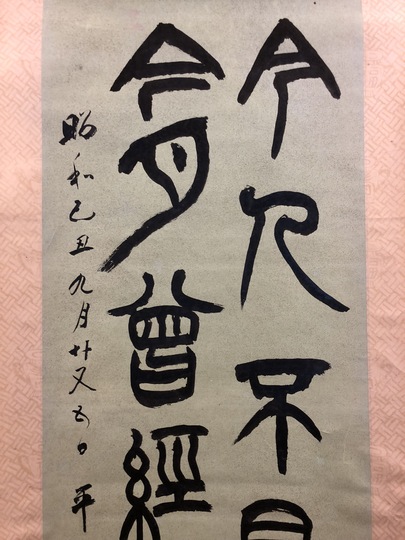 今人不
今月曾經
昭和己丑九月廿又五日 平